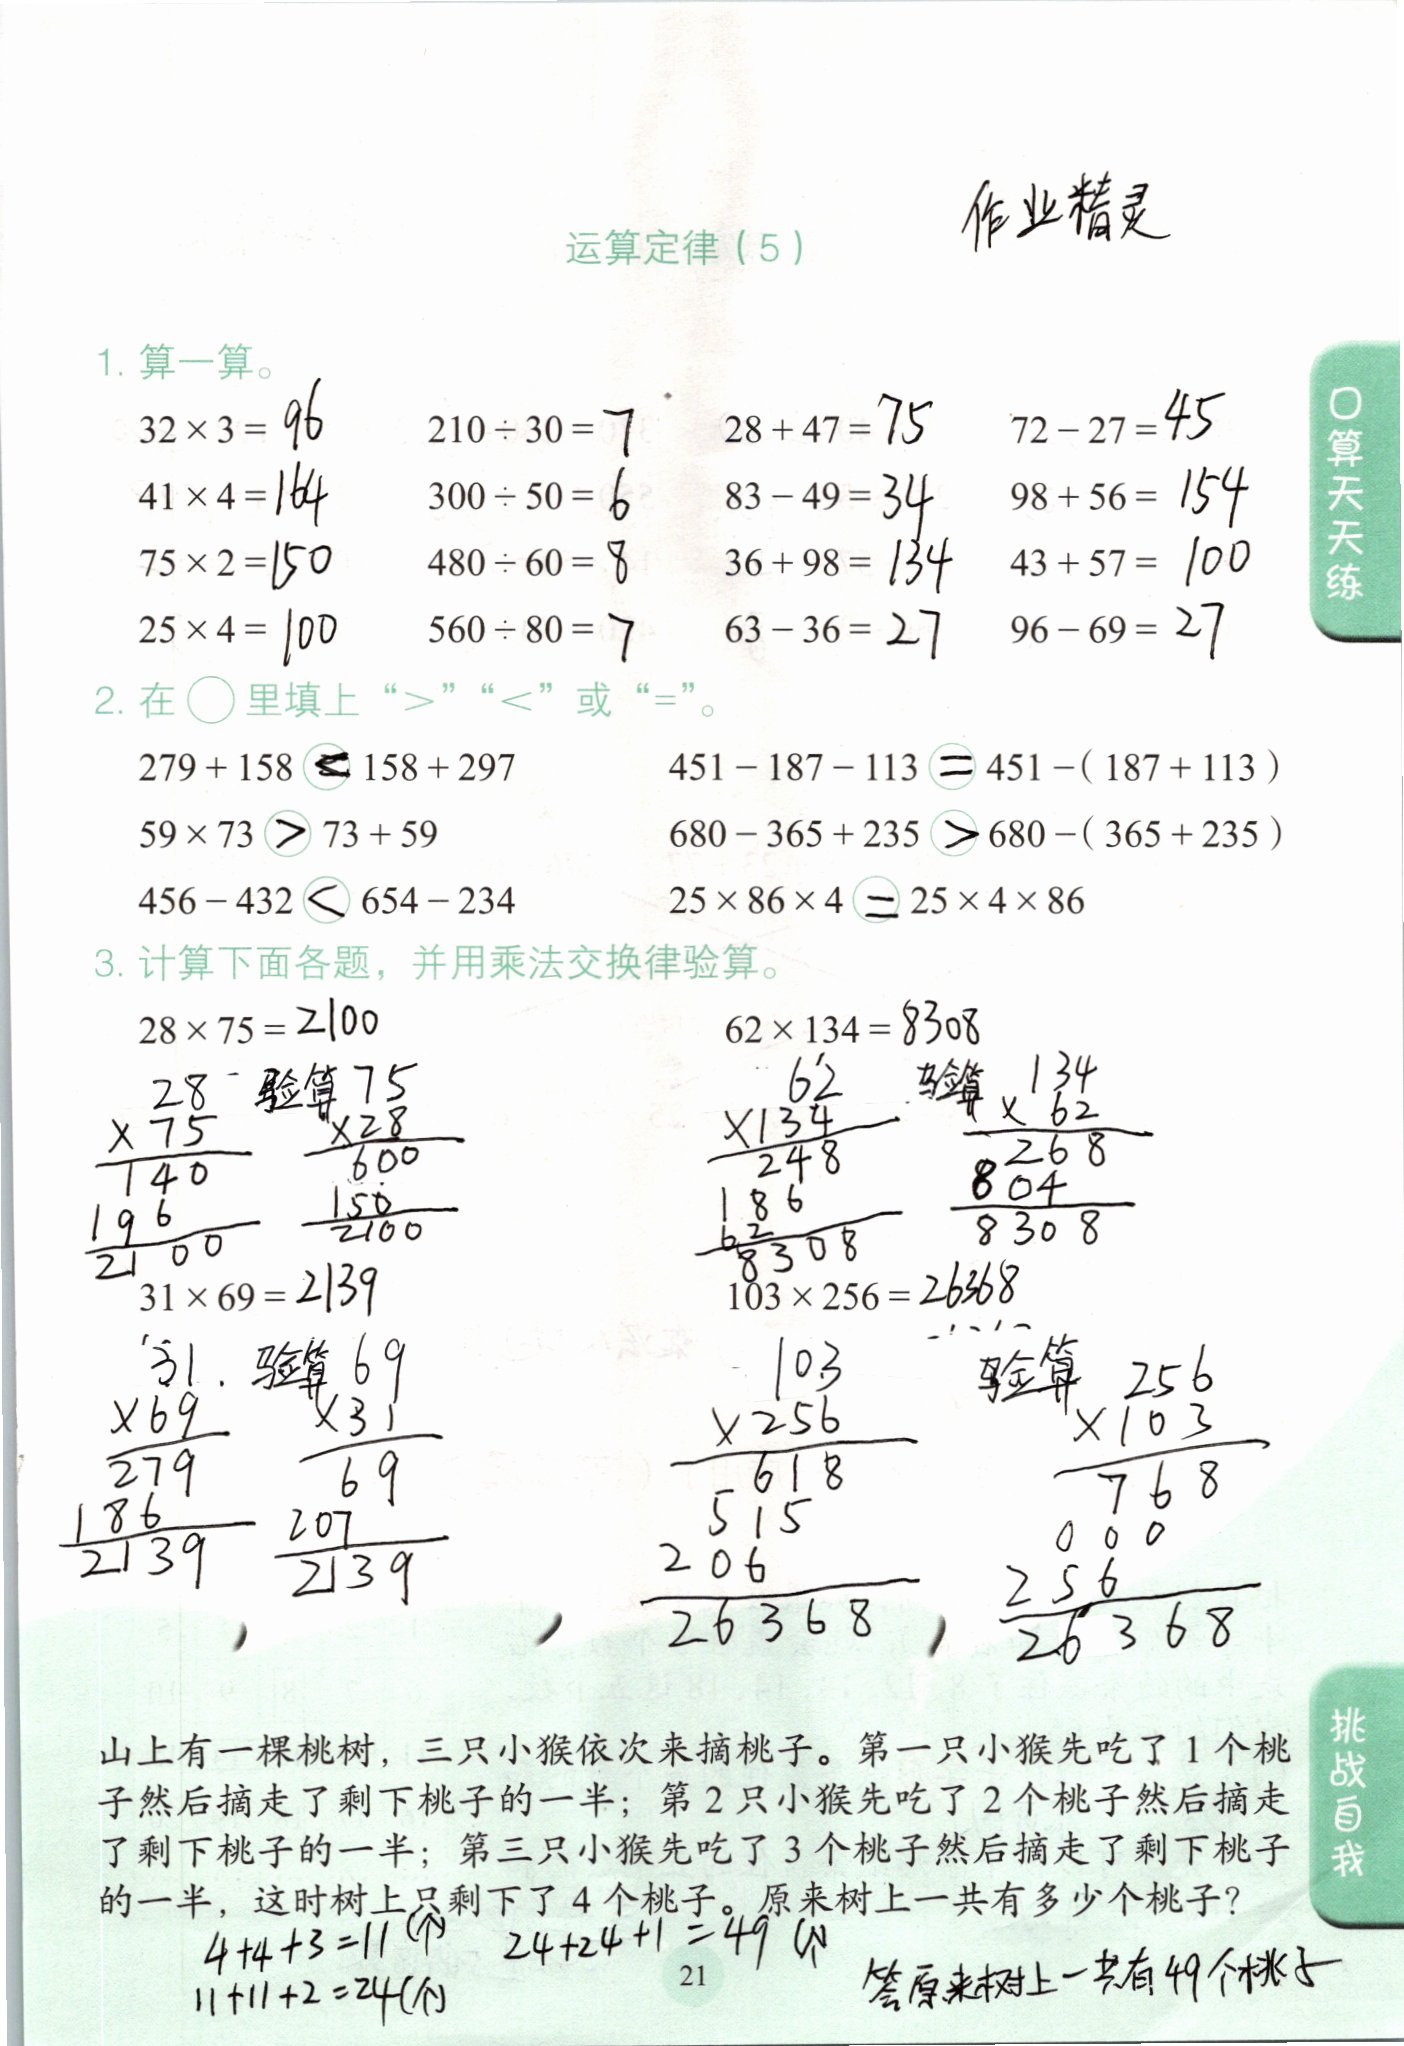 作业精灵
运算定律（5）
1. 算一算。
32 × 3 = 96 210 ÷ 30 = 7 28 + 47 = 75 72 − 27 = 45
41 × 4 = 164 300 ÷ 50 = 6 83 − 49 = 34 98 + 56 = 154
75 × 2 = 150 480 ÷ 60 = 8 36 + 98 = 134 43 + 57 = 100
25 × 4 = 100 560 ÷ 80 = 7 63 − 36 = 27 96 − 69 = 27
口算天天练
2. 在 ○ 里填上“>”“<”或“=”。
279 + 158 < 158 + 297 451 − 187 − 113 = 451 −（187 + 113）
59 × 73 > 73 + 59 680 − 365 + 235 > 680 −（365 + 235）
456 − 432 < 654 − 234 25 × 86 × 4 = 25 × 4 × 86
3. 计算下面各题，并用乘法交换律验算。
28 × 75 = 2100 62 × 134 = 8308
28 验算 75 62 验算 134
×75 ×28 ×134 × 62
140 600 248 268
196 150 186 804
2100 2100 62 8308
8308
31 × 69 = 2139 103 × 256 = 26368
31 验算 69 103 验算 256
×69 ×31 ×256 ×103
279 69 618 768
186 207 515 000
2139 2139 206 256
26368 26368
山上有一棵桃树，三只小猴依次来摘桃子。第一只小猴先吃了 1 个桃
子然后摘走了剩下桃子的一半；第 2 只小猴先吃了 2 个桃子然后摘走
了剩下桃子的一半；第三只小猴先吃了 3 个桃子然后摘走了剩下桃子
的一半，这时树上只剩下了 4 个桃子。原来树上一共有多少个桃子？
挑战自我
4+4+3=11(个) 24+24+1=49(个)
11+11+2=24(个)
答原来树上一共有49个桃子
21